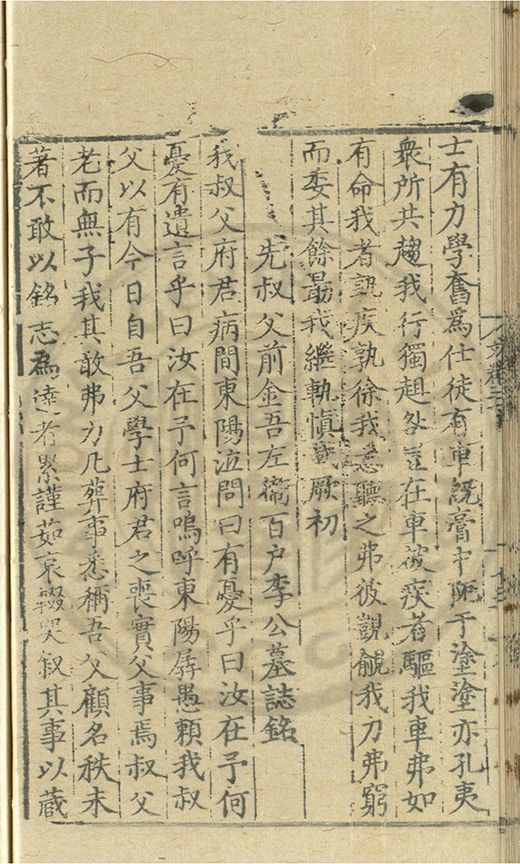 士有力學奮爲仕徒有車既膏中阨于塗塗亦孔夷
衆所共趨我行獨趄咎豈在車彼疾者驅我車弗如
有命我者孰疾孰徐我意聽之弗彼覬覦我力弗窮
而委其餘勗我繼軌慎哉厥初
先叔父前金吾左衞百户李公墓誌銘
我叔父府君病間東陽泣問曰有憂乎曰汝在予何
憂有遺言乎曰汝在予何言嗚呼東陽孱愚頼我叔
父以有今日自吾父學士府君之喪實父事焉叔父
老而無子我其敢弗力凡葬事悉稱吾父顧名秩未
著不敢以銘志爲達者累謹茹哀輟哭叙其事以蔵